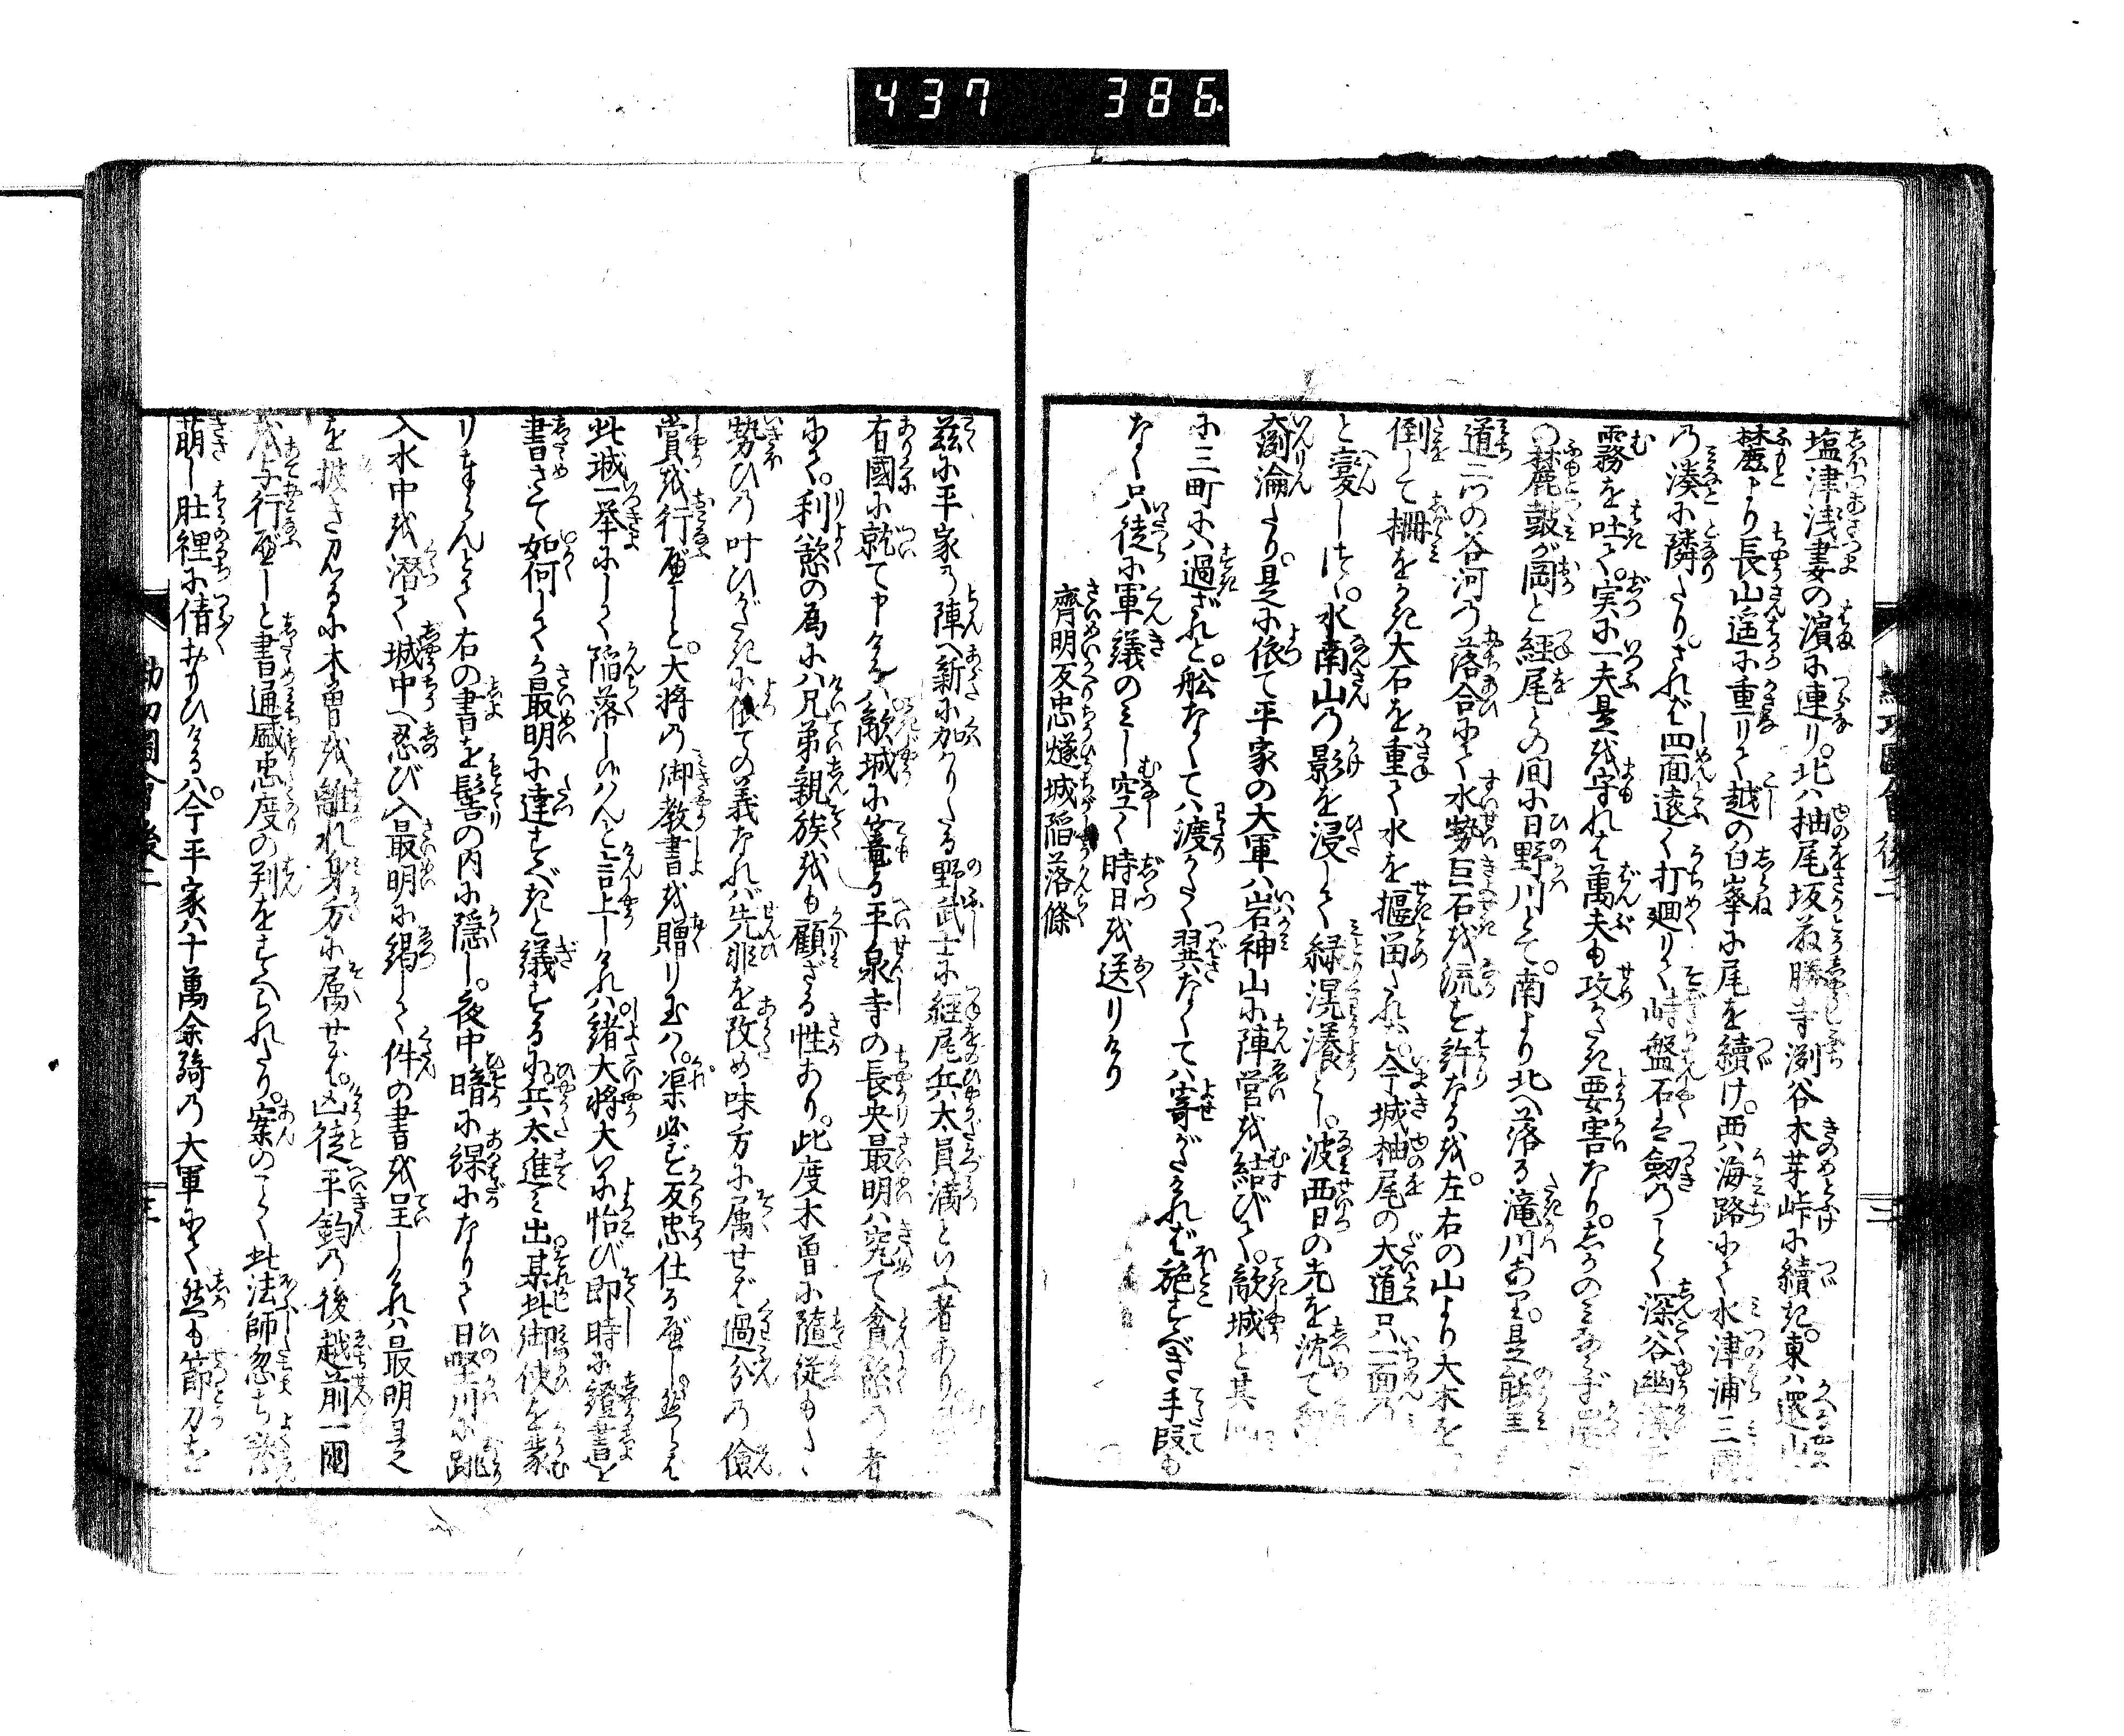 437 386
塩津浅妻の濱に連り。北ハ柚尾坂荻勝寺渕谷木芽峠に續き。東ハ還山
麓より長山遥に重りて越の白峯に尾を續け。西ハ海路にて水津浦三國
の湊に隣たり。されバ四面遠く打廻りて峙盤石ハ劔のごとく深谷幽
霧を吐て。実に一夫是を守れバ萬夫も攻がたき要害なり。しかのミならず
の麓鼓が岡と経尾との間に日野川とて。南より北へ落る滝川あり。是能
道二ツの谷河の落合にて水勢巨石を流す許なるを。左右の山より大木を
倒して柵をかき大石を重て水を堰畄たれハ。今城柚尾の大道只一面の
と変しけり。水南山の影を浸して緑滉瀁とし。波西日の光を沈て
奫淪たり。是に依て平家の大軍ハ岩神山に陣営を結びて。敵城と其
に三町にハ過ざれど。舩なくてハ渡がたく翼なくてハ寄がたけれバ施すべき手段も
なく只徒に軍議のミし空く時日を送りけり
齊明反忠燧城陥落條
茲に平家の陣へ新に加りたる野武士に経尾兵太員満といふ者あり
有國に就て申けるハ敵城に篭る平泉寺の長央最明ハ究て貪慾の者
にて。利慾の為にハ兄弟親族をも顧ざる性あり。此度木曽に隨従も
勢ひの叶ひがたきに依ての義なれバ先非を改め味方に属せバ過分の儉
賞を行ふべしと。大将の御教書を贈り玉ハゞ。渠必ず反忠仕るべし。然らバ
此城一挙にして陥落し候ハんと言上しけれハ緒大将大に怡び即時に證書を
書さて如何してか最明に達すべきと議するに兵太進ミ出某此御使を蒙
りまゐらんとて右の書を髻の内に隠し。夜中暗に裸になりて日野川に跳
入水中を潜て城中へ忍び入最明に謁して件の書を呈しけれハ最明
を披き見るに木曽を離れ身方に属せバ。凶徒平鈞の後越前一國
行ふべしと書通盛忠度の判をすへられたり。案のごとく此法師忽ち
萠し肚裡に倩おもひけるハ。今平家八十萬余騎の大軍にて然も節刀を